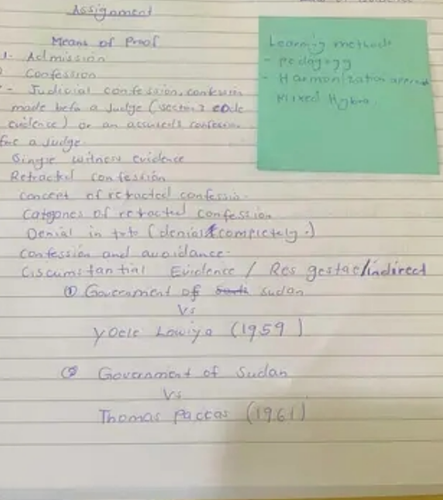 Assignment
Means of Proof
1- Admission
Confession
- Judicial confession, confession
made befor a Judge (section 3 code
evidence) or an accused's confession
fore a Judge.
Single witness evidence
Retracted confession
concent of retracted confession
Categories of retracted confession
Denial in toto (denial completely.)
Confession and avoidance.
Circumstantial Evidence / Res gestae/indirect
(1) Government of Sudan
Vs
Lowiya (1959)
(2) Government of Sudan
Vs
Thomas (1961)
Learning methods
- Pedagogy
- Harmonization
Mixed